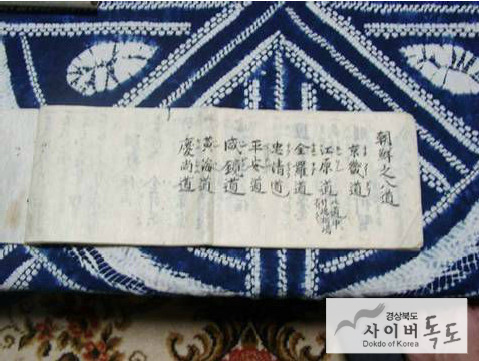 朝鮮之八道
京畿道
江原道 此道中
竹嶋松嶋
全羅道
忠清道
平安道
咸鏡道
黄海道
慶尚道
경상북도
사이버독도
Dokdo of Korea